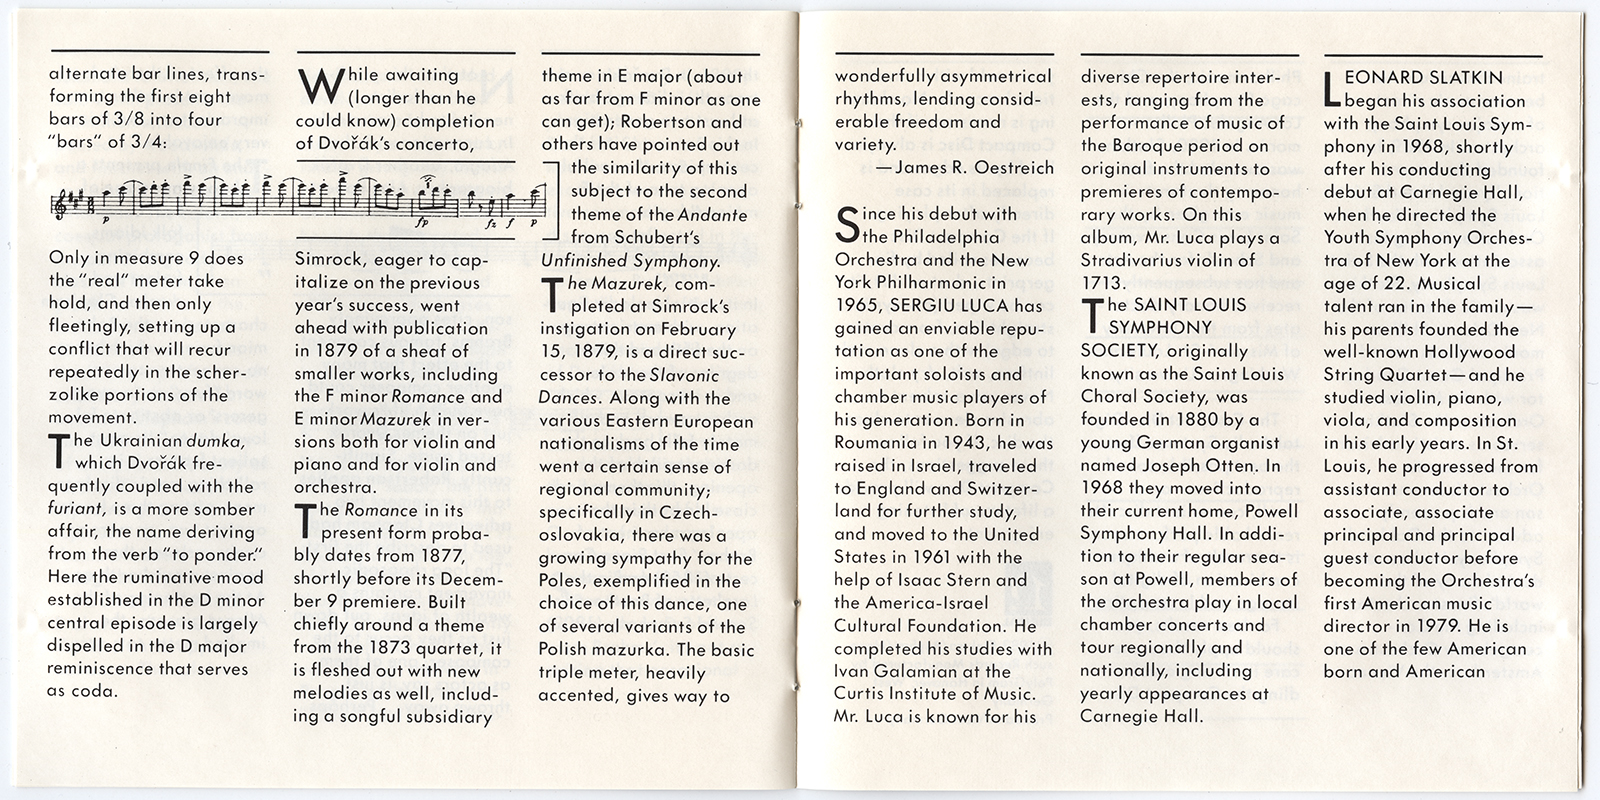 alternate bar lines, trans-
forming the first eight
bars of 3/8 into four
"bars" of 3/4:
p fp fz f p
Only in measure 9 does
the "real" meter take
hold, and then only
fleetingly, setting up a
conflict that will recur
repeatedly in the scher-
zolike portions of the
movement.
The Ukrainian dumka,
which Dvořák fre-
quently coupled with the
furiant, is a more somber
affair, the name deriving
from the verb "to ponder."
Here the ruminative mood
established in the D minor
central episode is largely
dispelled in the D major
reminiscence that serves
as coda.
While awaiting
(longer than he
could know) completion
of Dvořák's concerto,
Simrock, eager to cap-
italize on the previous
year's success, went
ahead with publication
in 1879 of a sheaf of
smaller works, including
the F minor Romance and
E minor Mazurek in ver-
sions both for violin and
piano and for violin and
orchestra.
The Romance in its
present form proba-
bly dates from 1877,
shortly before its Decem-
ber 9 premiere. Built
chiefly around a theme
from the 1873 quartet, it
is fleshed out with new
melodies as well, includ-
ing a songful subsidiary
theme in E major (about
as far from F minor as one
can get); Robertson and
others have pointed out
the similarity of this
subject to the second
theme of the Andante
from Schubert's
Unfinished Symphony.
The Mazurek, com-
pleted at Simrock's
instigation on February
15, 1879, is a direct suc-
cessor to the Slavonic
Dances. Along with the
various Eastern European
nationalisms of the time
went a certain sense of
regional community;
specifically in Czech-
oslovakia, there was a
growing sympathy for the
Poles, exemplified in the
choice of this dance, one
of several variants of the
Polish mazurka. The basic
triple meter, heavily
accented, gives way to
wonderfully asymmetrical
rhythms, lending consid-
erable freedom and
variety.
—James R. Oestreich
Since his debut with
the Philadelphia
Orchestra and the New
York Philharmonic in
1965, SERGIU LUCA has
gained an enviable repu-
tation as one of the
important soloists and
chamber music players of
his generation. Born in
Roumania in 1943, he was
raised in Israel, traveled
to England and Switzer-
land for further study,
and moved to the United
States in 1961 with the
help of Isaac Stern and
the America-Israel
Cultural Foundation. He
completed his studies with
Ivan Galamian at the
Curtis Institute of Music.
Mr. Luca is known for his
diverse repertoire inter-
ests, ranging from the
performance of music of
the Baroque period on
original instruments to
premieres of contempo-
rary works. On this
album, Mr. Luca plays a
Stradivarius violin of
1713.
The SAINT LOUIS
SYMPHONY
SOCIETY, originally
known as the Saint Louis
Choral Society, was
founded in 1880 by a
young German organist
named Joseph Otten. In
1968 they moved into
their current home, Powell
Symphony Hall. In addi-
tion to their regular sea-
son at Powell, members of
the orchestra play in local
chamber concerts and
tour regionally and
nationally, including
yearly appearances at
Carnegie Hall.
LEONARD SLATKIN
began his association
with the Saint Louis Sym-
phony in 1968, shortly
after his conducting
debut at Carnegie Hall,
when he directed the
Youth Symphony Orches-
tra of New York at the
age of 22. Musical
talent ran in the family—
his parents founded the
well-known Hollywood
String Quartet—and he
studied violin, piano,
viola, and composition
in his early years. In St.
Louis, he progressed from
assistant conductor to
associate, associate
principal and principal
guest conductor before
becoming the Orchestra's
first American music
director in 1979. He is
one of the few American
born and American